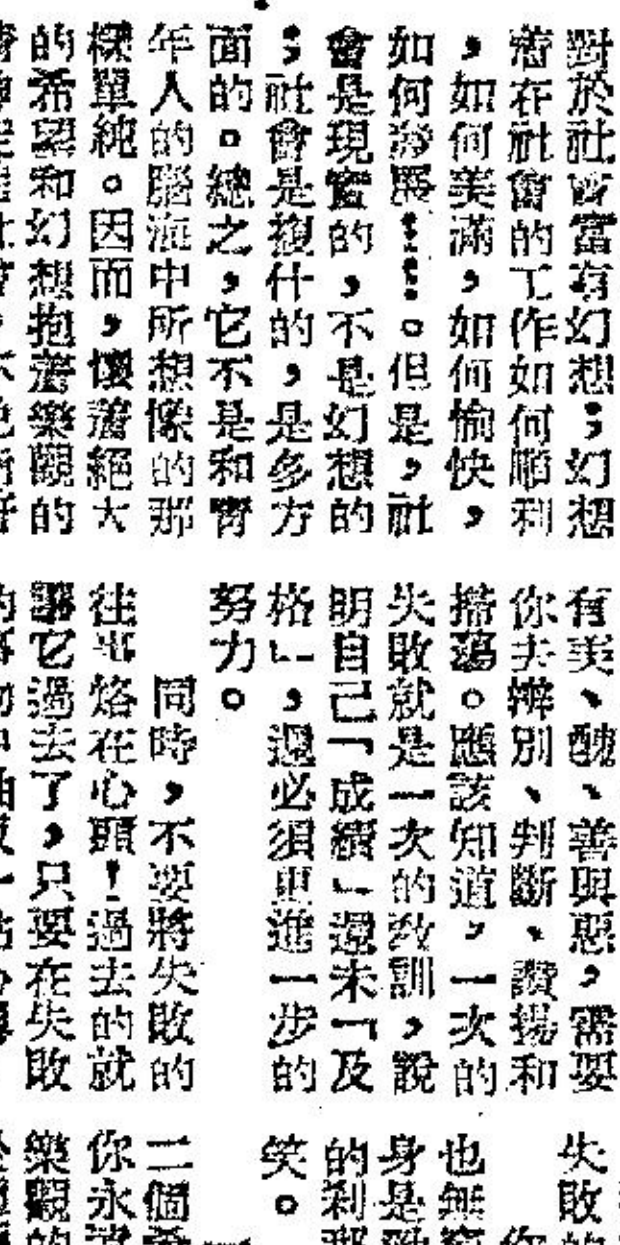 對於社會富有幻想；幻想
着在社會的工作如何順利
，如何美滿，如何愉快，
如何發展……。但是，社
會是現實的，不是幻想的
；社會是複什的，是多方
面的。總之，它不是和靑
年人的腦海中所想像的那
樣單純。因而，懷着絕大
的希望和幻想抱着樂觀的
有美、醜、善與惡，需要
你去辨別、判斷、讚揚和
掃蕩。應該知道，一次的
失敗就是一次的敎訓，說
明自己「成績」還未「及
格」，還必須更進一步的
努力。
同時，不要將失敗的
往事烙在心頭！過去的就
讓它過去了，只要在失敗
失敗
也無
身是
的刹那
笑。
二個
你永遠
樂觀的